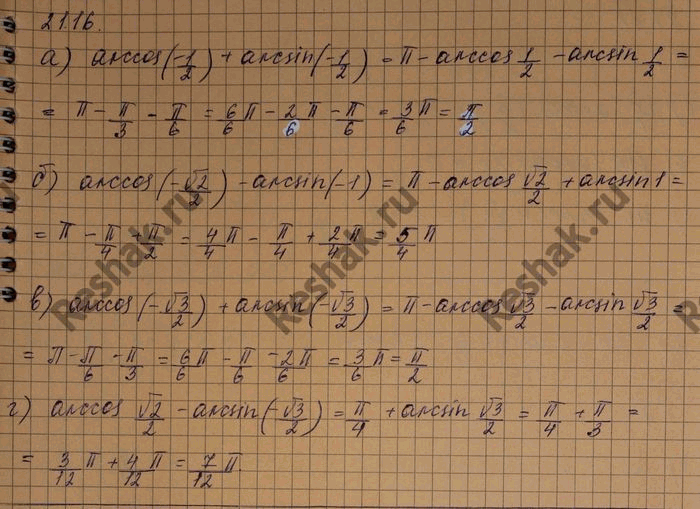 21.16.
а) arccos(-1/2) + arcsin(-1/2) = π - arccos 1/2 - arcsin 1/2 =
= π - π/3 - π/6 = 6/6 π - 2/6 π - π/6 = 3/6 π = π/2
б) arccos(-√2/2) - arcsin(-1) = π - arccos √2/2 + arcsin 1 =
= π - π/4 + π/2 = 4/4 π - π/4 + 2/4 π = 5/4 π
в) arccos(-√3/2) + arcsin(-√3/2) = π - arccos √3/2 - arcsin √3/2 =
= π - π/6 - π/3 = 6/6 π - π/6 - 2/6 π = 3/6 π = π/2
г) arccos √2/2 - arcsin(-√3/2) = π/4 + arcsin √3/2 = π/4 + π/3 =
= 3/12 π + 4/12 π = 7/12 π.
Reshak.ru
Reshak.ru
Reshak.ru